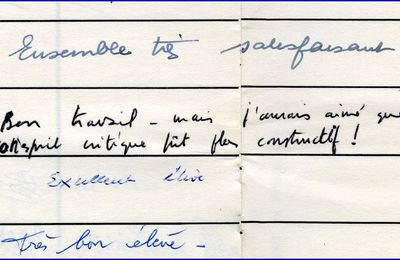 Ensemble très satisfaisant
Bon travail - mais j'aurais aimé que
l'esprit critique fût plus constructif !
Excellent élève
Très bon élève -